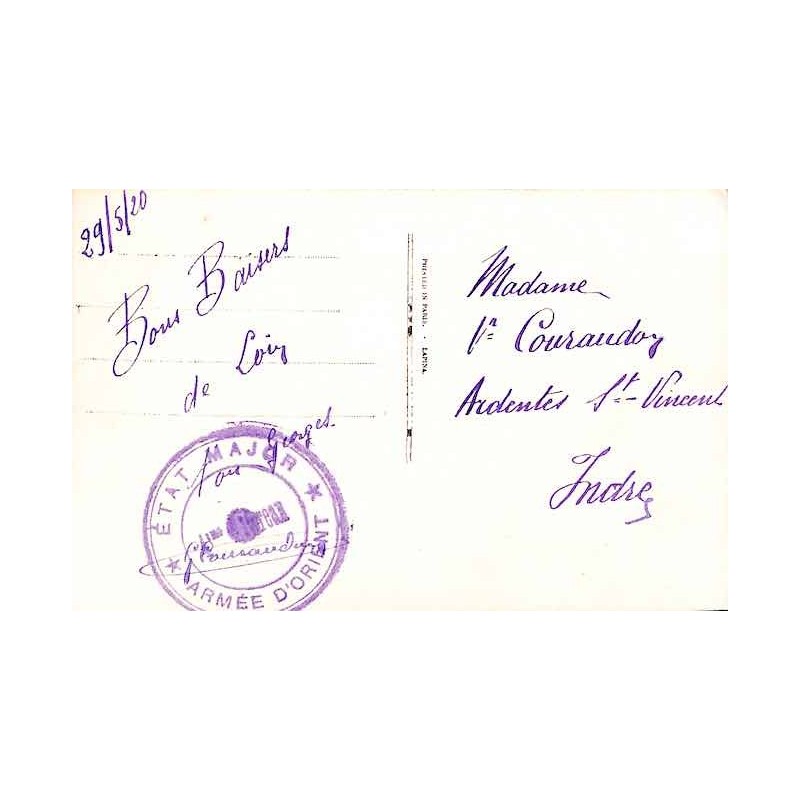 29/5/20
Bons Baisers
de Loin
ton Georges
ÉTAT MAJOR
Bureau
ARMÉE D'ORIENT
PRINTED IN PARIS. - LAPINA.
Madame
Vᵉ Couraudon
Ardentes St-Vincent
Indre